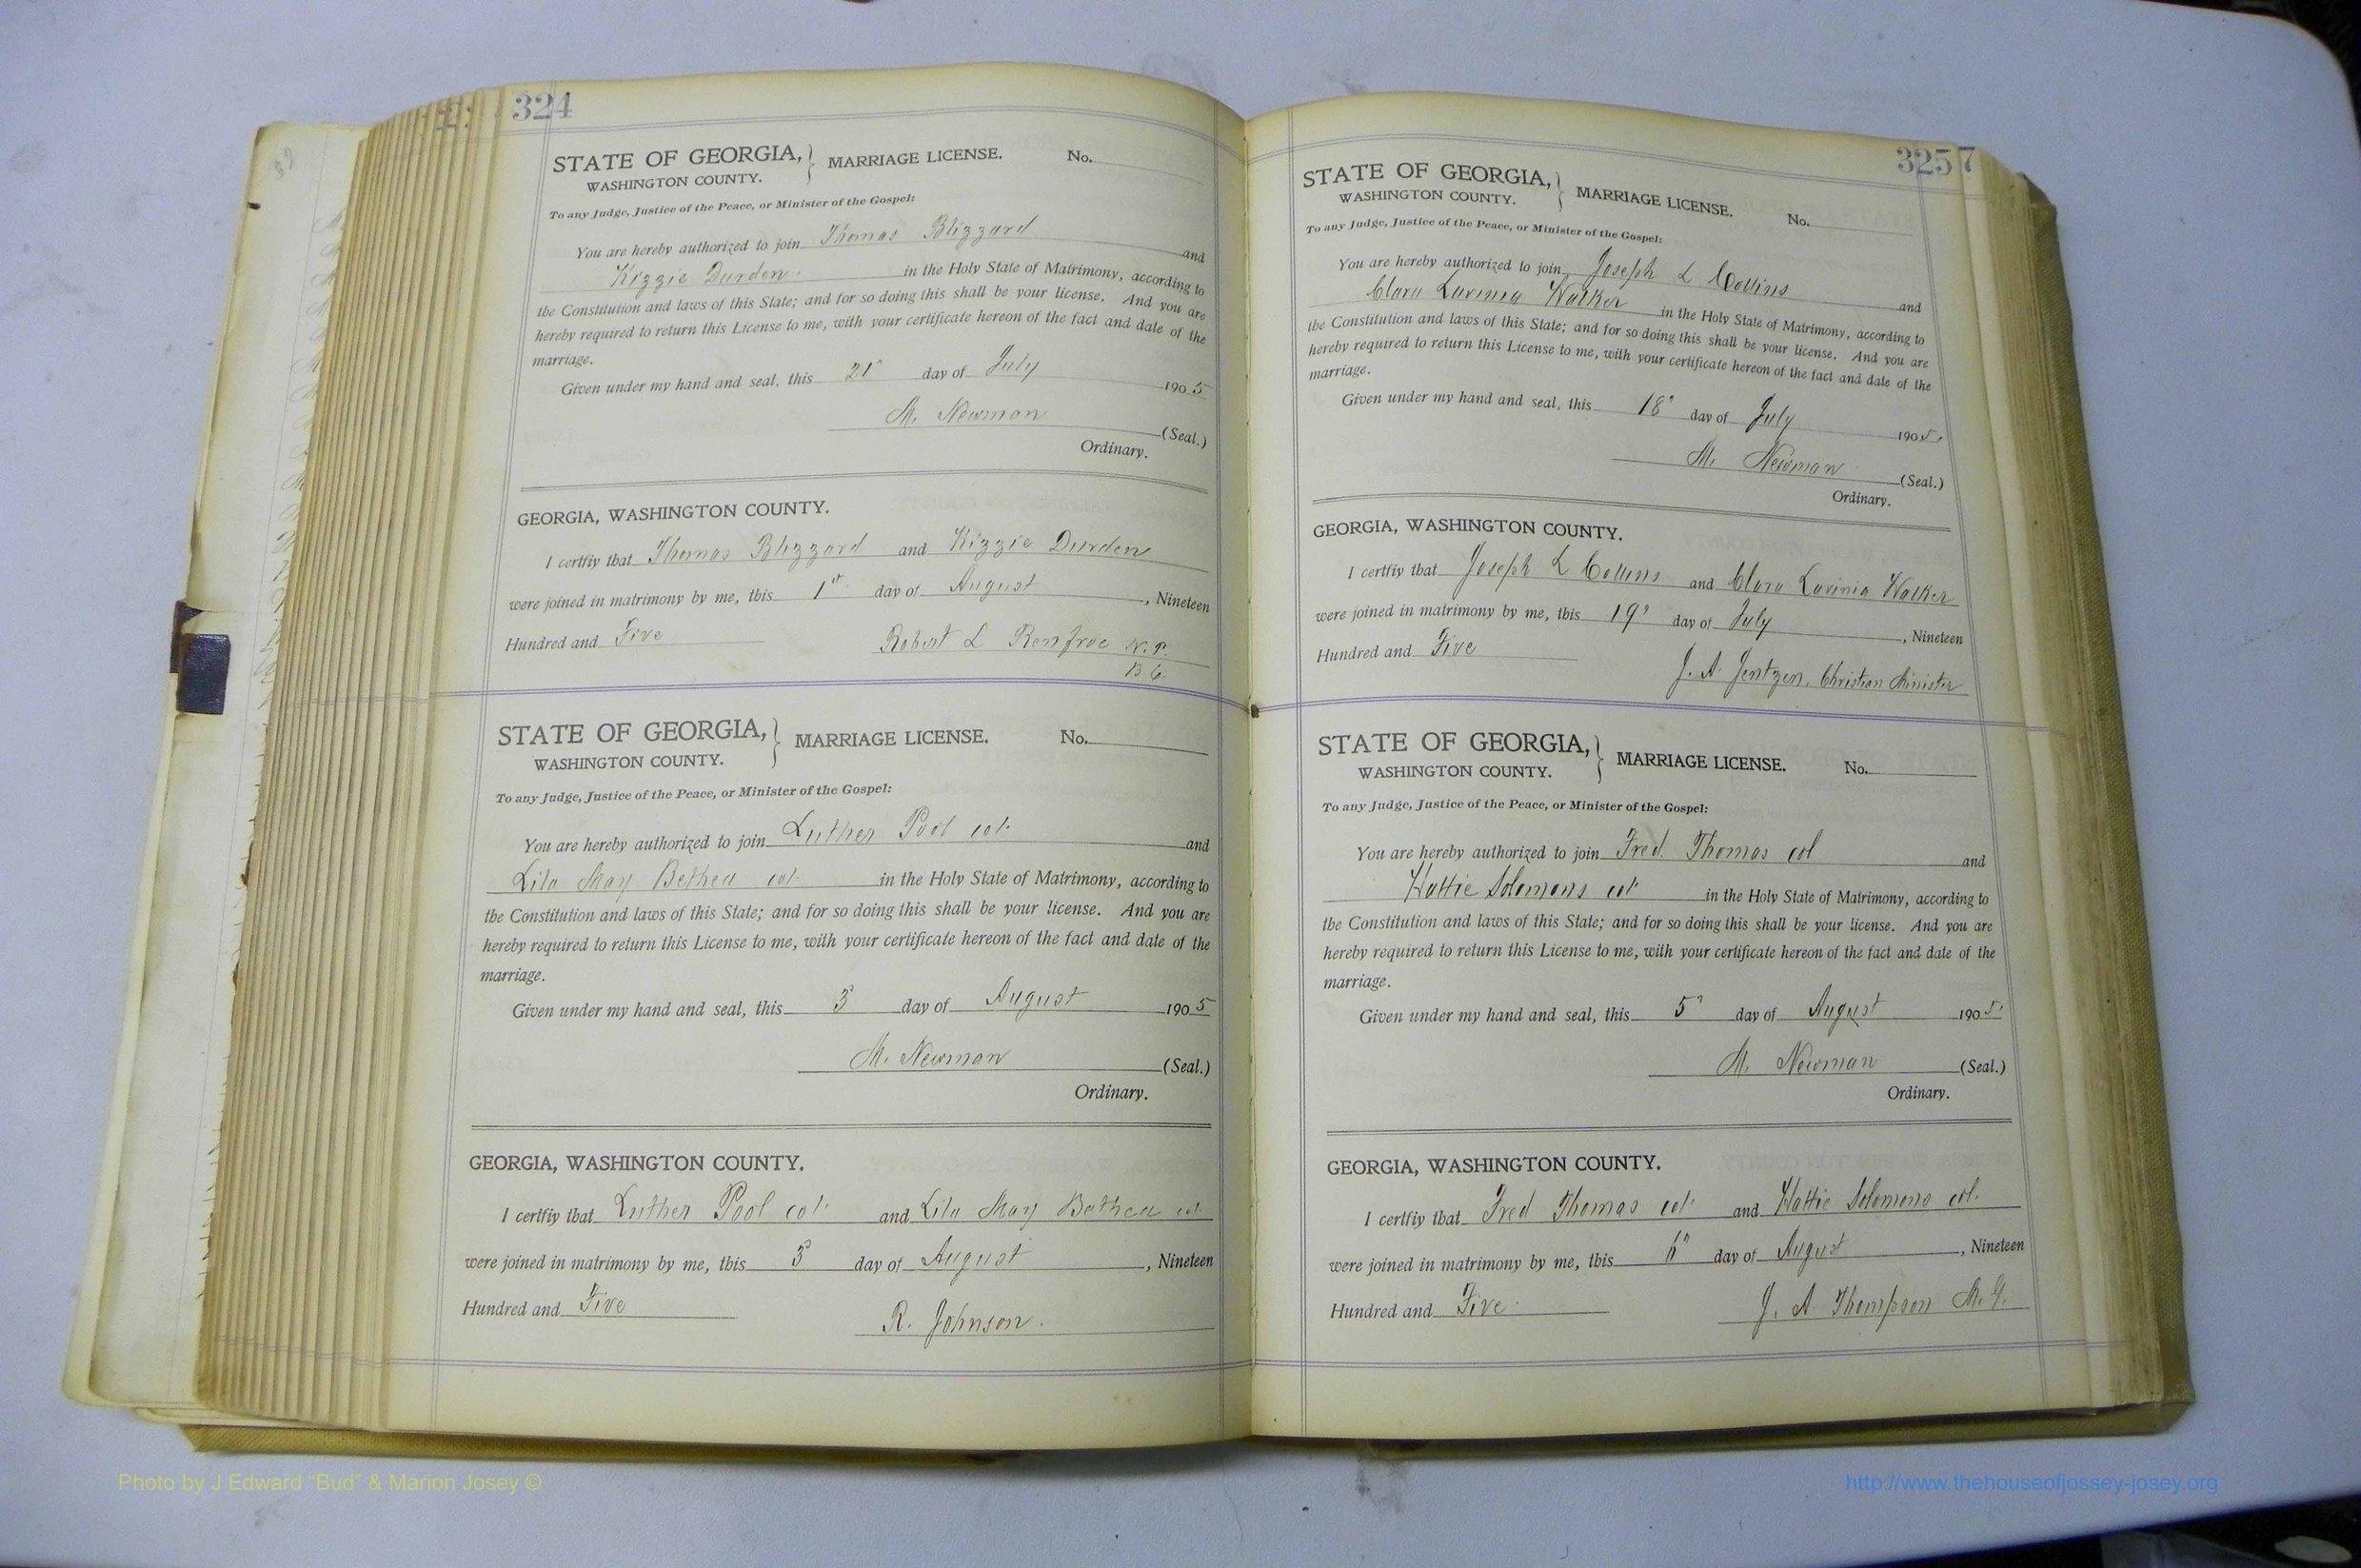 324
STATE OF GEORGIA, } MARRIAGE LICENSE. No.
WASHINGTON COUNTY.
To any Judge, Justice of the Peace, or Minister of the Gospel:
You are hereby authorized to join Thomas Blizzard and
Kizzie Durden in the Holy State of Matrimony, according to
the Constitution and laws of this State; and for so doing this shall be your license. And you are
hereby required to return this License to me, with your certificate hereon of the fact and date of the
marriage.
Given under my hand and seal, this 21" day of July 1905
M. Newman (Seal.)
Ordinary.
GEORGIA, WASHINGTON COUNTY.
I certfiy that Thomas Blizzard and Kizzie Durden
were joined in matrimony by me, this 1st day of August, Nineteen
Hundred and Five Robert L Renfroe N. P.
STATE OF GEORGIA, } MARRIAGE LICENSE. No.
WASHINGTON COUNTY.
To any Judge, Justice of the Peace, or Minister of the Gospel:
You are hereby authorized to join Luther Pool col. and
Lila May Bethea col. in the Holy State of Matrimony, according to
the Constitution and laws of this State; and for so doing this shall be your license. And you are
hereby required to return this License to me, with your certificate hereon of the fact and date of the
marriage.
Given under my hand and seal, this 3" day of August 1905
M. Newman (Seal.)
Ordinary.
GEORGIA, WASHINGTON COUNTY.
I certfiy that Luther Pool col. and Lila May Bethea col.
were joined in matrimony by me, this 3" day of August, Nineteen
Hundred and Five R. Johnson.
3257
STATE OF GEORGIA, } MARRIAGE LICENSE. No.
WASHINGTON COUNTY.
To any Judge, Justice of the Peace, or Minister of the Gospel:
You are hereby authorized to join Joseph L Collins and
Clara Lavinia Walker in the Holy State of Matrimony, according to
the Constitution and laws of this State; and for so doing this shall be your license. And you are
hereby required to return this License to me, with your certificate hereon of the fact and date of the
marriage.
Given under my hand and seal, this 18" day of July 1905.
M. Newman (Seal.)
Ordinary.
GEORGIA, WASHINGTON COUNTY.
I certfiy that Joseph L Collins and Clara Lavinia Walker
were joined in matrimony by me, this 19" day of July, Nineteen
Hundred and Five J. A. Jentzen, Christian Minister
STATE OF GEORGIA, } MARRIAGE LICENSE. No.
WASHINGTON COUNTY.
To any Judge, Justice of the Peace, or Minister of the Gospel:
You are hereby authorized to join Fred. Thomas col and
Hattie Solomons col. in the Holy State of Matrimony, according to
the Constitution and laws of this State; and for so doing this shall be your license. And you are
hereby required to return this License to me, with your certificate hereon of the fact and date of the
marriage.
Given under my hand and seal, this 5" day of August 1905.
M. Newman (Seal.)
Ordinary.
GEORGIA, WASHINGTON COUNTY.
I certfiy that Fred Thomas col. and Hattie Solomons col.
were joined in matrimony by me, this 6" day of August, Nineteen
Hundred and Five. J. A. Thompson M. G.
Photo by J Edward "Bud" & Marion Josey ©
http://www.thehouseofjossey-josey.org